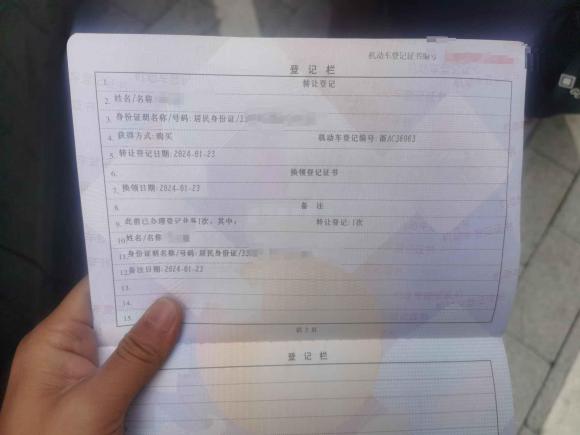 机动车登记证书编号
登记栏
1. 转让登记
2. 姓名/名称
3. 身份证明名称/号码:居民身份证/33
4. 获得方式:购买 机动车登记编号:浙AC36063
5. 转让登记日期:2024-01-23
6. 换领登记证书
7. 换领日期:2024-01-23
8. 备注
9. 此前已办理登记业务1次,其中: 转让登记:1次
10. 姓名/名称
11. 身份证明名称/号码:居民身份证/33
12. 备注日期:2024-01-23
13.
14.
15.
第 2 页
登记栏